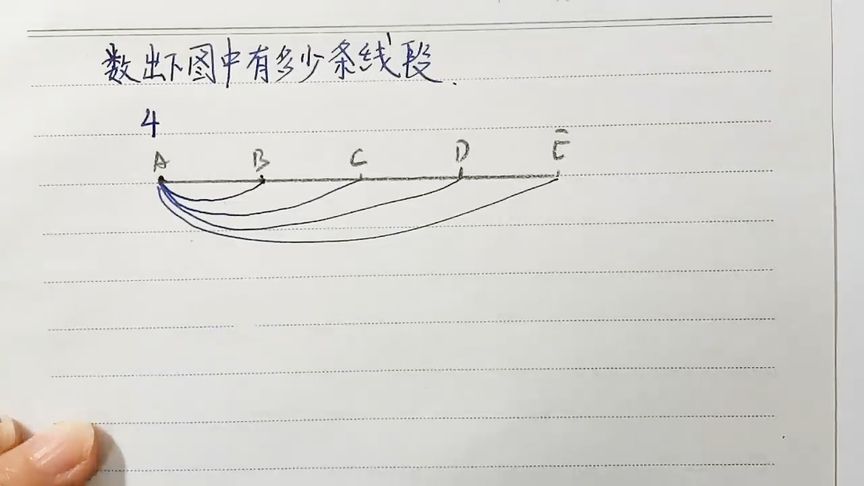 数出下图中有多少条线段.
4
A B C D E